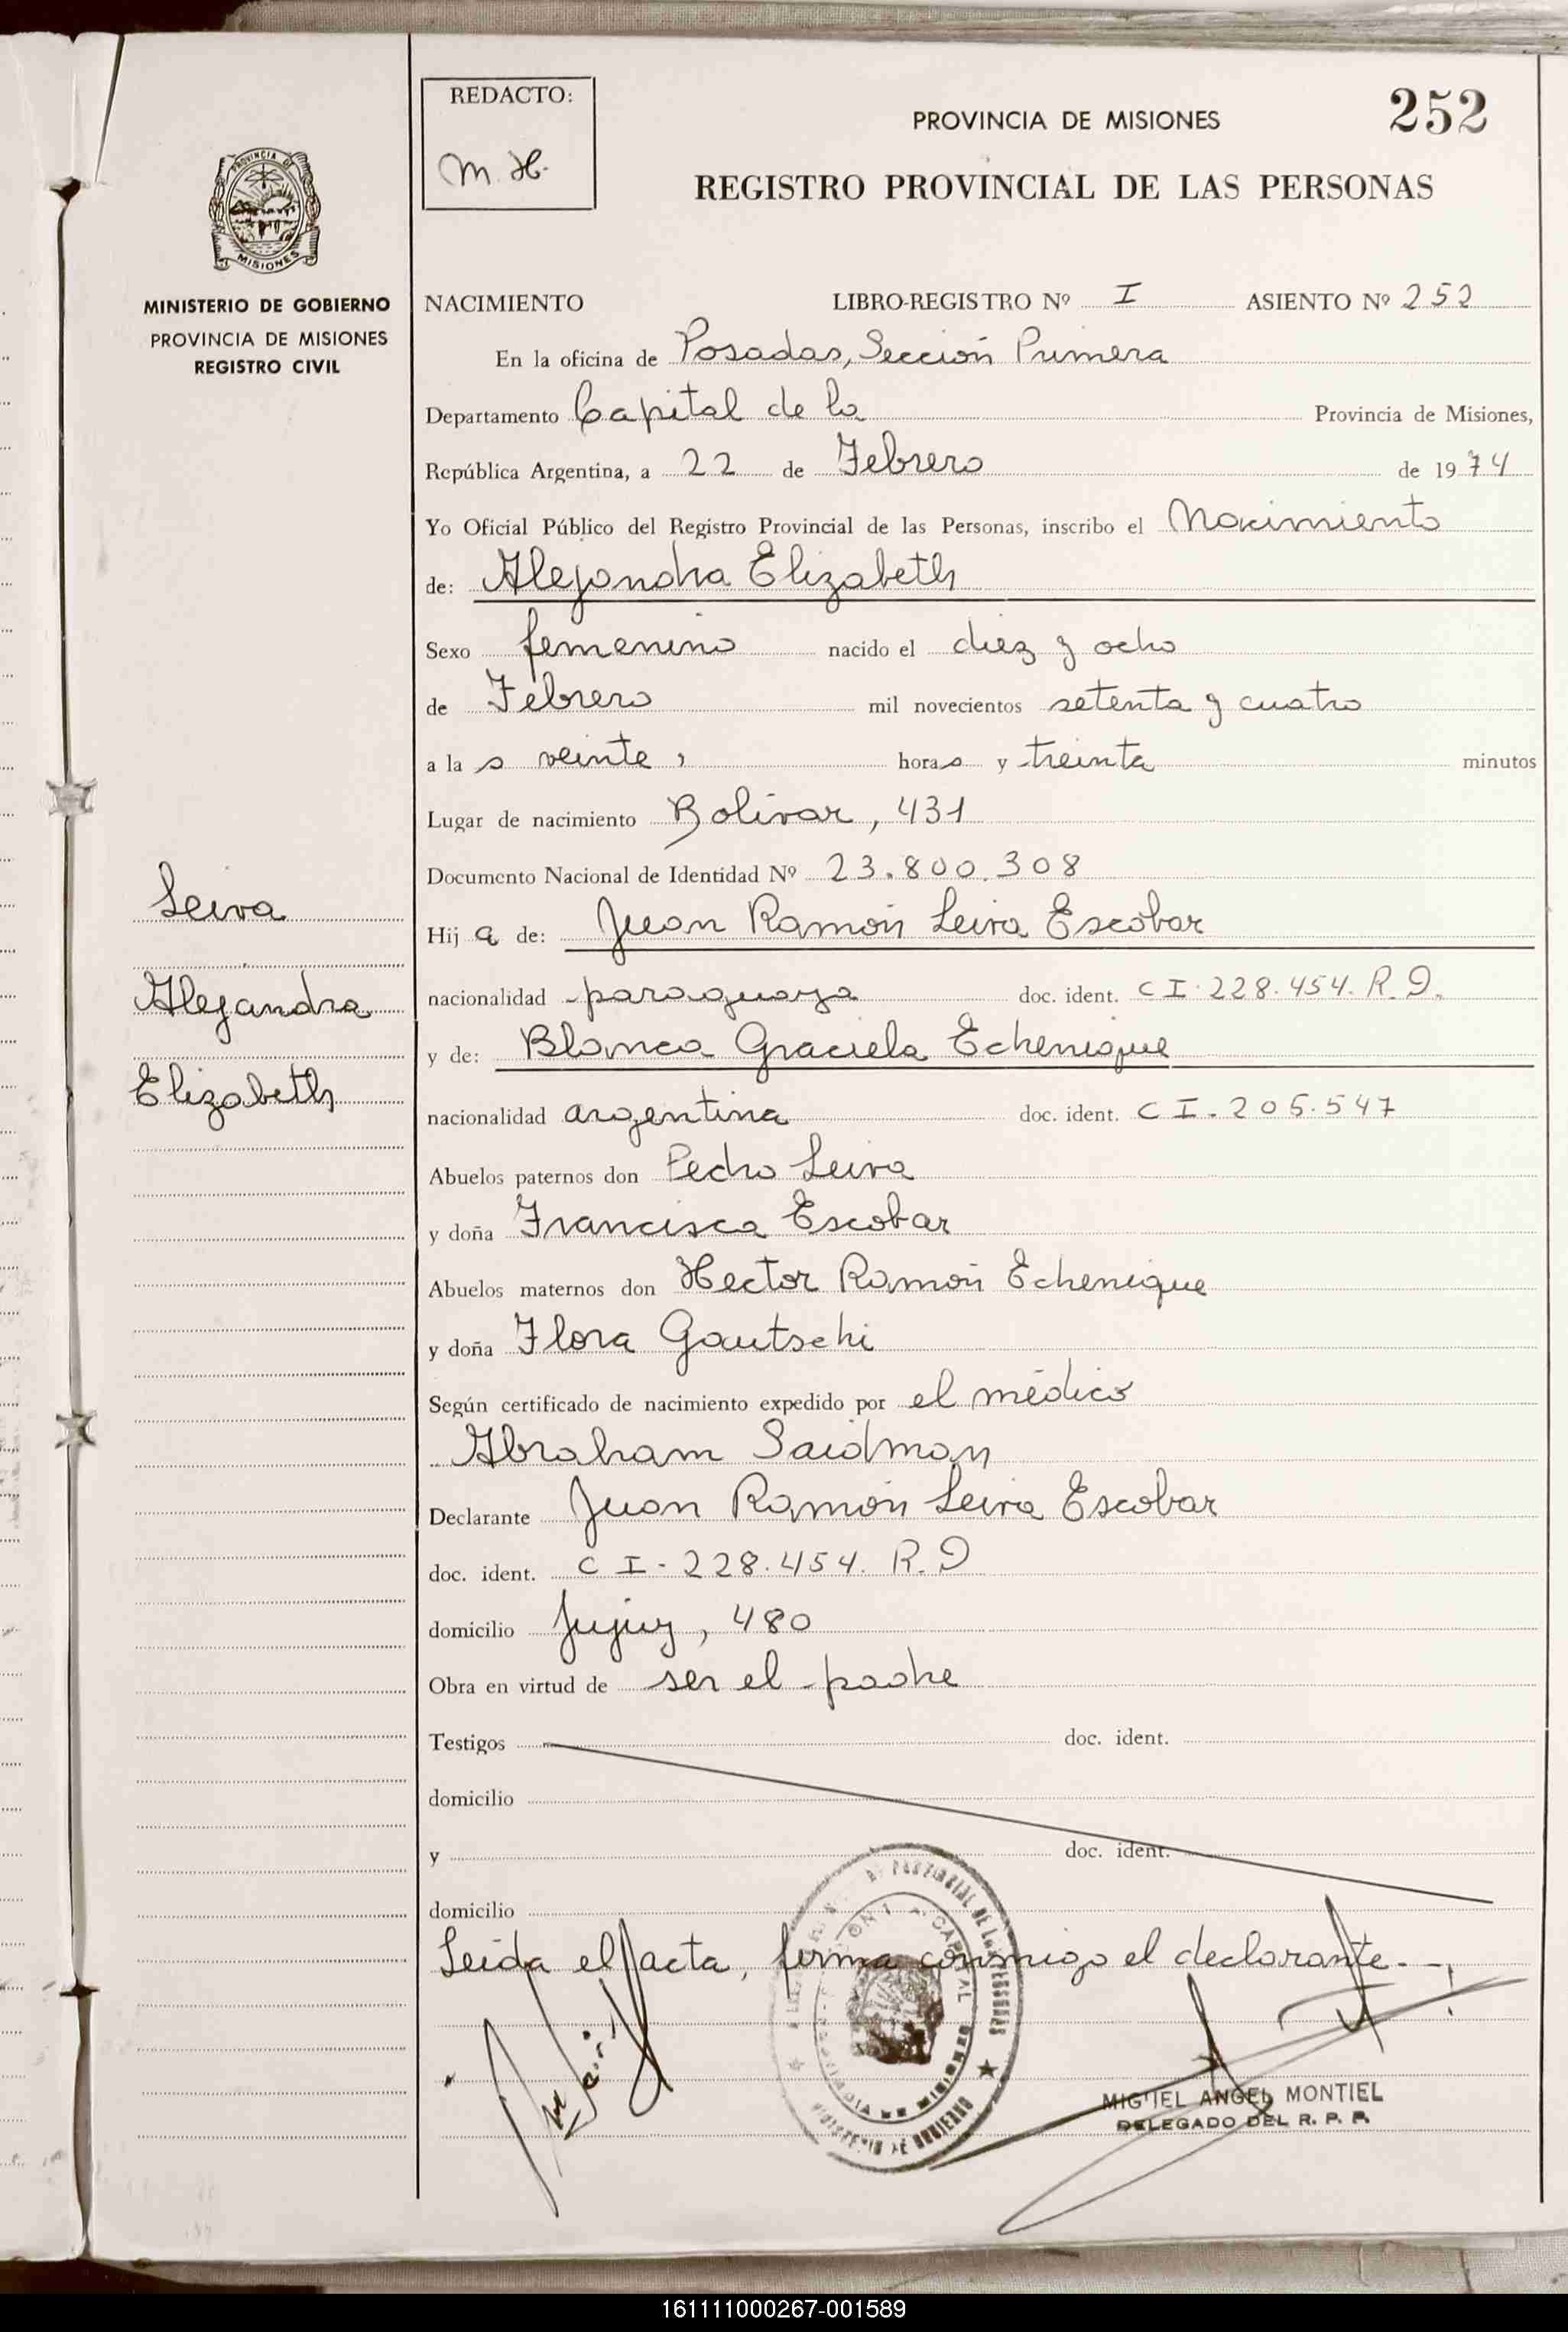 REDACTO:
M. H.
PROVINCIA DE MISIONES
252
REGISTRO PROVINCIAL DE LAS PERSONAS
PROVINCIA DE
MISIONES
MINISTERIO DE GOBIERNO
PROVINCIA DE MISIONES
REGISTRO CIVIL
NACIMIENTO LIBRO-REGISTRO Nº I ASIENTO Nº 252
En la oficina de Posadas, Sección Primera
Departamento Capital de la Provincia de Misiones,
República Argentina, a 22 de Febrero de 1974
Yo Oficial Público del Registro Provincial de las Personas, inscribo el Nacimiento
de: Alejandra Elizabeth
Sexo femenino nacido el diez y ocho
de Febrero mil novecientos setenta y cuatro
a la s veinte, hora s y treinta minutos
Lugar de nacimiento Bolivar, 431
Documento Nacional de Identidad Nº 23.800.308
Leiva
Alejandra
Elizabeth
Hij a de: Juan Ramón Leiva Escobar
nacionalidad paraguaya doc. ident. C I. 228.454. R.D.
y de: Blanca Graciela Echenique
nacionalidad argentina doc. ident. C I. 205.547
Abuelos paternos don Pedro Leiva
y doña Francisca Escobar
Abuelos maternos don Hector Ramón Echenique
y doña Flora Gautschi
Según certificado de nacimiento expedido por el médico
Abraham Saidman
Declarante Juan Ramón Leiva Escobar
doc. ident. C I - 228.454. R.D
domicilio Jujuy, 480
Obra en virtud de ser el padre
Testigos doc. ident.
domicilio
y doc. ident.
domicilio
Leida el acta, firma conmigo el declarante.-
MIGUEL ANGEL MONTIEL
DELEGADO DEL R. P. P.
161111000267-001589